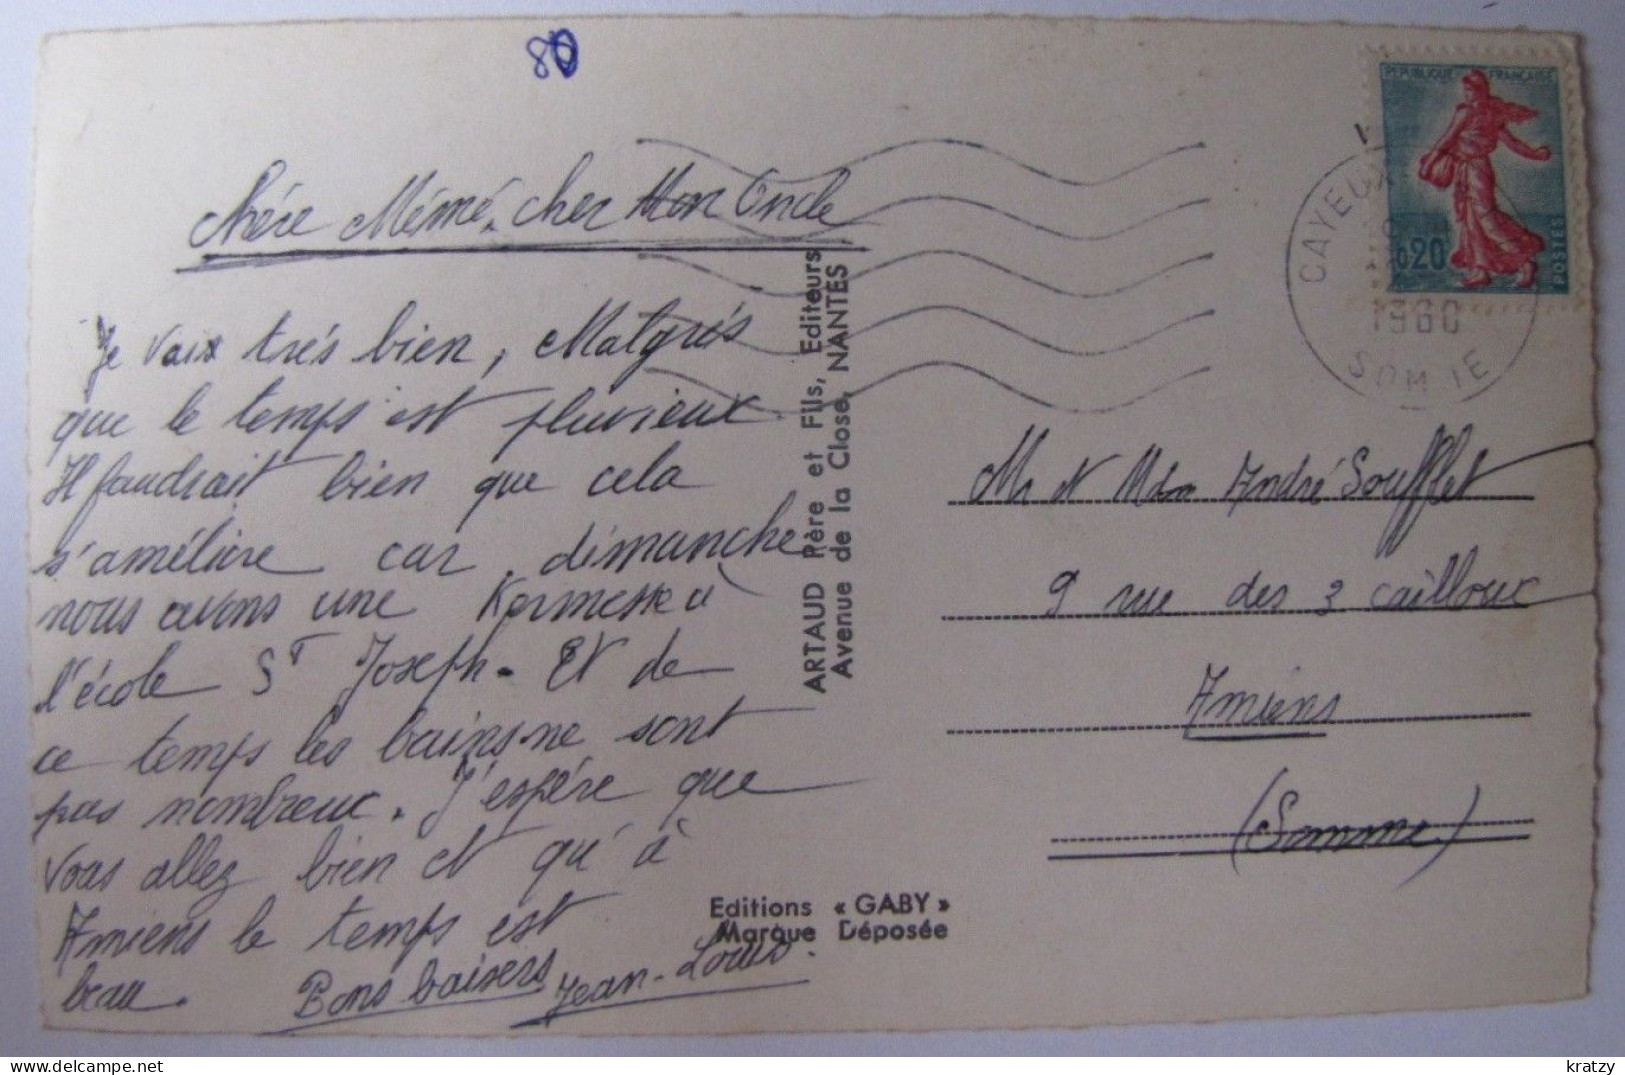 80
Chère Mémé, cher Mon Oncle
Je vaix trés bien, Malgrés
que le temps est pluvieux
Il faudrait bien que cela
s'améliore car dimanche
nous avons une Kermesse à
l'école St Joseph. Et de
ce temps les bains ne sont
pas nombreux. J'espére que
vous allez bien et qu'à
Amiens le temps est
beau. Bons baisers Jean-Louis.
ARTAUD Père et Fils, Editeurs
Avenue de la Close, NANTES
Editions « GABY »
Marque Déposée
REPUBLIQUE FRANÇAISE
0,20
POSTES
CAYEUX
1960
SOMME
Mr et Mme André Soufflet
9 rue des 3 cailloux
Amiens
(Somme)
kratzy